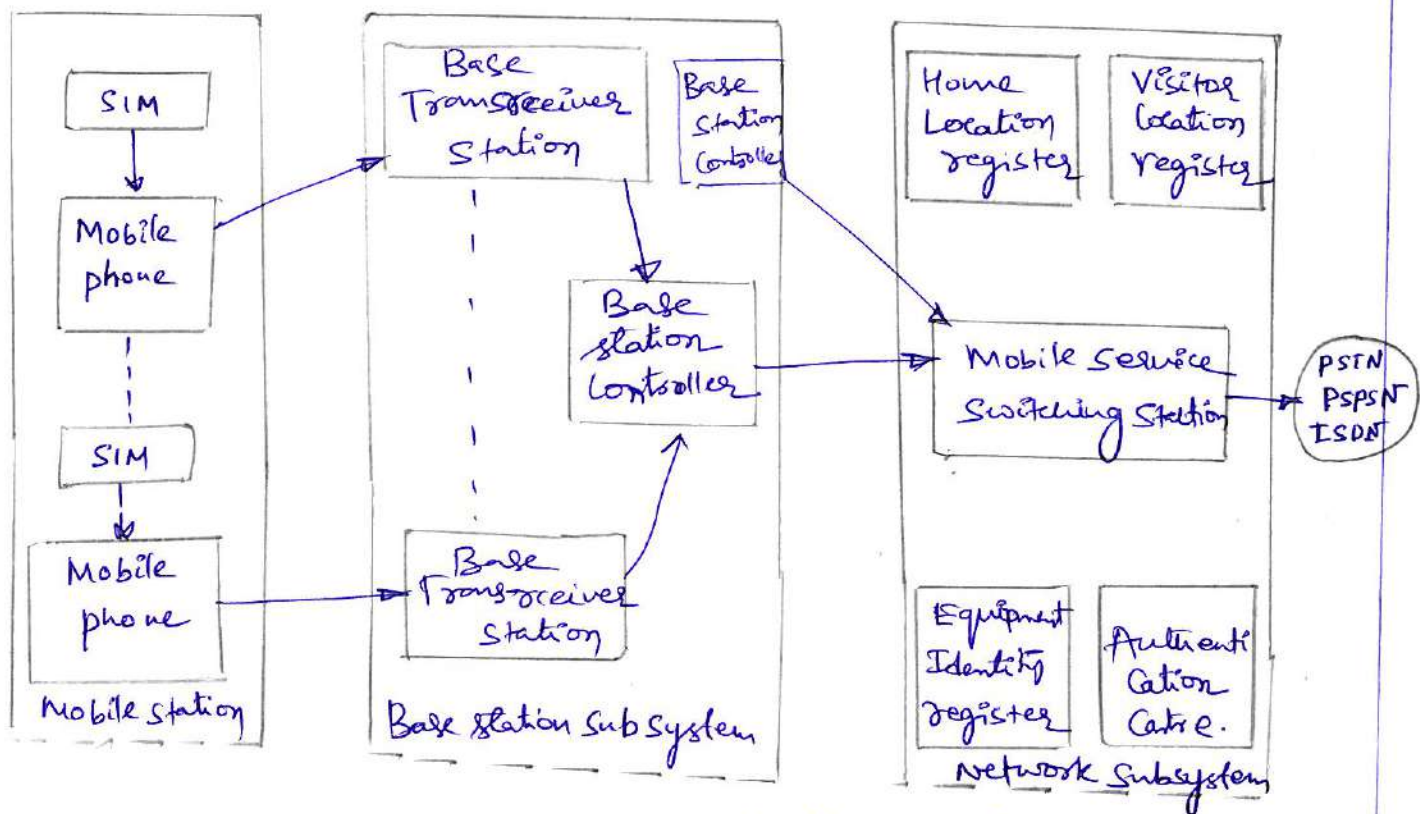 SIM
Mobile
phone
SIM
Mobile
phone
Mobile station
Base
Transreceiver
Station
Base
Station
Controller
Base
station
Controller
Base
Transreceiver
Station
Base station Subsystem
Home
Location
register
Visitor
location
register
Mobile Service
Switching Station
PSTN
PSPSN
ISDN
Equipment
Identity
register
Authenti
cation
Catre.
Network Subsystem